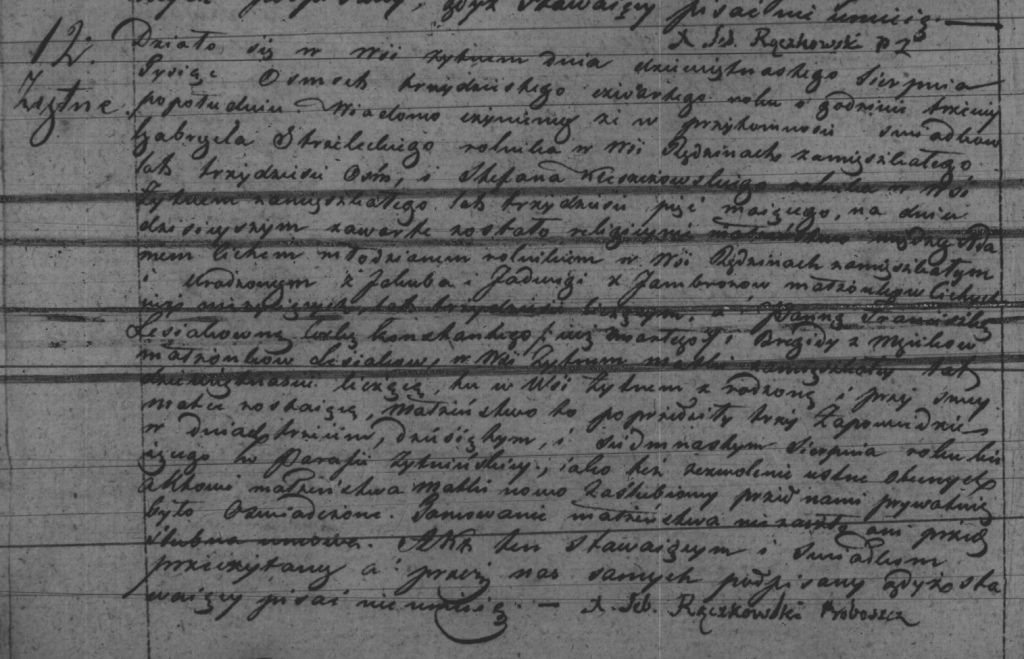 gdyż stawaiący pisać nie umieią.
X Seb. Rączkowski P Z
12. Działo się w Wsi Żytnem dnia dziewiętnastego Sierpnia
Żytne. Tysiąc Osmset trzydziestego czwartego roku o godzinie trzeciey
popołudniu. Wiadomo czyniemy że w przytomności świadków
Gabryela Strzeleckiego rolnika w Wsi Rędzinach zamięszkałego
lat trzydzieści Ośm, i Stefana rolnika w Wsi
Żytnem zamięszkałego lat trzydzieści pięć maiącego, na dniu
dzisieyszym zawarte zostało religiyne małżeństwo między Ada
mem Cichem młodzianem rolnikiem w Wsi Rędzinach zamięszkałym
i urodzonym z Jakuba i Jadwigi z Jambrozów małżonków Cichych
iuż nieżyiących, lat trzydzieści liczącym, a Panną Franciszką
Lesiakowną córką Konstantego /: iuż zmarłego :/ i Brygidy z
małżonków Lesiaków, w Wsi Żytnem matki zamięszkałey lat
dziewiętnaście liczącą, tu w Wsi Żytnem zrodzoną i przy swey
matce zostaiącą, Małżeństwo to poprzedziły trzy Zapowiedzie
w dniach trzecim, dziesiątym, i siedmnastym Sierpnia roku bie
żącego w Parafii Żytnieńskiey, iako też zezwolenie ustne obecnych
aktowi małżeństwa Matki nowo Zaślubioney przed nami prywatnie
było Oświadczone. Tamowanie małżeństwa niezaszło ani przed
ślubna umowa. Akt ten stawaiącym i Świadkom
przeczytany a przez nas samych podpisany gdyż sta
waiący pisać nie umieią. — X. Seb. Rączkowski Proboszcz